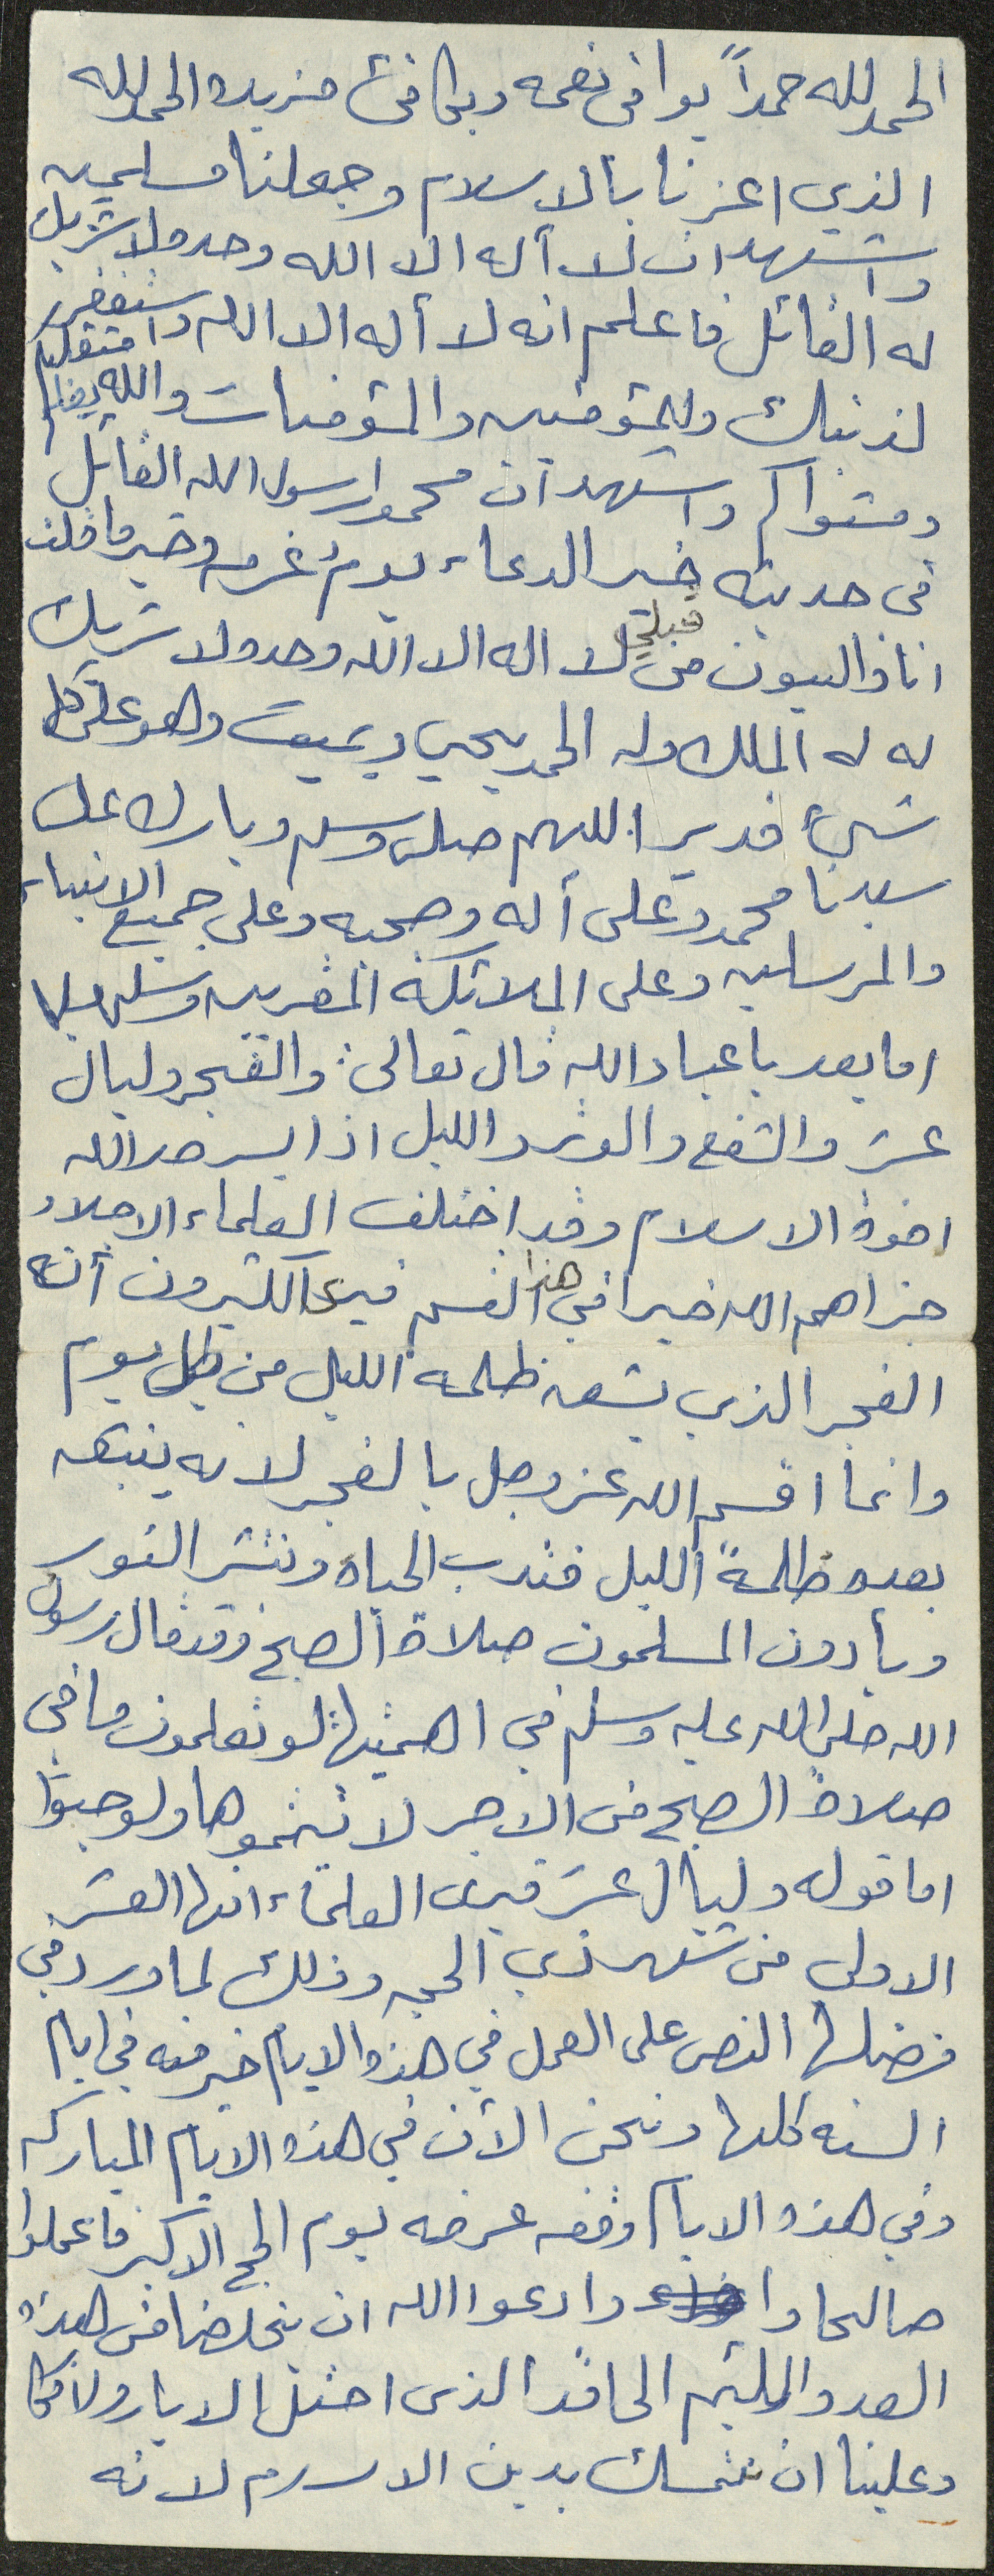 الحمد لله حمداً يوافي نعمه ويكافئ مزيده الحمد لله
الذي اعزنا بالاسلام وجعلنا مسلمين
واشهد ان لا أله الا الله وحده لا شريك
له القائل فاعلم انه لا أله الا الله واستغفر
لذنبك وللمؤمنين والمؤمنات والله يعلم متقلبكم
ومثواكم واشهد ان محمدا رسول الله القائل
في حديثه خير الدعاء يوم عرفه وخير ما قلت
انا والنبيون من قبلي لا اله الا الله وحده لا شريك
له له الملك وله الحمد يحيي ويميت وهو على كل
شيء قدير اللهم صل وسلم وبارك على
سيدنا محمد وعلى أله وصحبه وعلى جميع الانبياء
والمرسلين وعلى الملائكة المقربين وسلم
اما بعد يا عباد الله قال تعالى: والفجر وليال
عشر والشفع والوتر والليل اذا يسر صدق الله
اخوة الاسلام وقد اختلف العلماء الاجلاء
جزاهم الله خيرا في هذا القسم فيرى الكثيرون أنه
الفجر الذي يشق ظلمة الليل من كل يوم
وانما اقسم الله عز وجل بالفجر لانه ينبثق
بعده ظلمة الليل فتدب الحياة وينتشر النور
ويأدون المسلمون صلاة الصبح وقد قال رسول
الله صلى الله عليه وسلم في اهميتها لو تعلمون ما في
صلاة الصبح من الاجر لأتيتموها ولو حبوا
اما قوله وليال عشر فيرى العلماء انها العشر
الاولى من شهر ذي الحجه وذلك لما ورد في
فضلها النص على العمل في هذه الايام خير منه في ايام
السنه كلها ونحن الآن في هذه الايام المباركه
وفي هذه الايام وقفه عرفه يوم الحج الاكبر فاعملوا
صالحا وادعوا الله ان يخلصنا من هذا
العدو اللئيم الحاقد الذي احتل الديار ولا
وعلينا ان نتمسك بدين الاسلام لانه